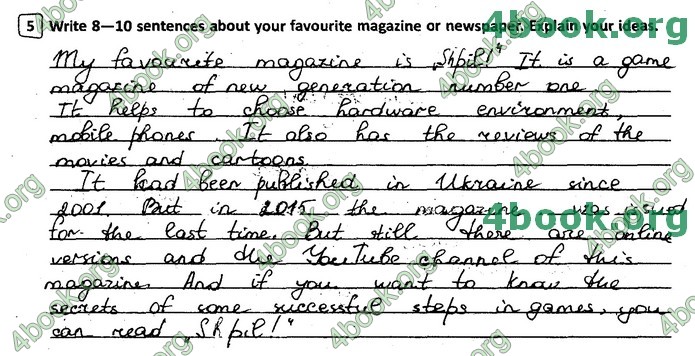 5 Write 8—10 sentences about your favourite magazine or newspaper. Explain your ideas.
My favourite magazine is „Shpil!“ It is a game
magazine of new generation number one.
It helps to choose hardware environment,
mobile phones. It also has the reviews of the
movies and cartoons.
It had been published in Ukraine since
2001. But in 2015 the magazine was issued
for the last time. But still there are online
versions and the YouTube channel of this
magazine. And if you want to know the
secrets of some successful steps in games, you
can read „Shpil!“
4book.org
4book.org
4book.org
4book.org